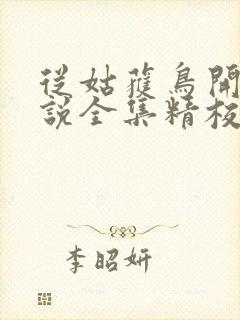 從姑蒦鳥開
說全集精校
李昭妍